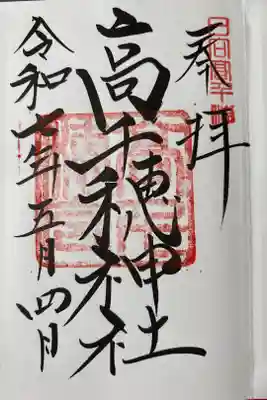 日向高千穂
奉拝
高千穂神社
令和七年五月四日